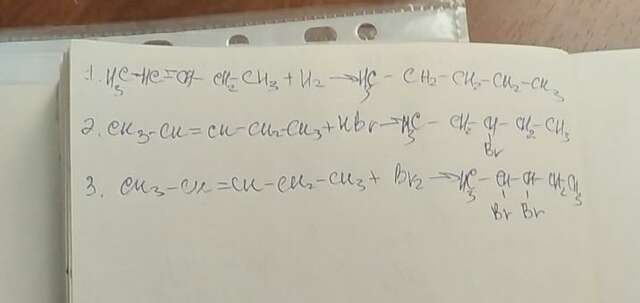 1. H₃C-HC=CH-CH₂CH₃ + H₂ → H₃C - CH₂-CH₂-CH₂-CH₃
2. CH₃-CH=CH-CH₂-CH₃ + HBr → H₃C - CH₂ CH - CH₂ - CH₃
Br
3. CH₃-CH=CH-CH₂-CH₃ + Br₂ → H₃C - CH - CH - CH₂CH₃
Br Br